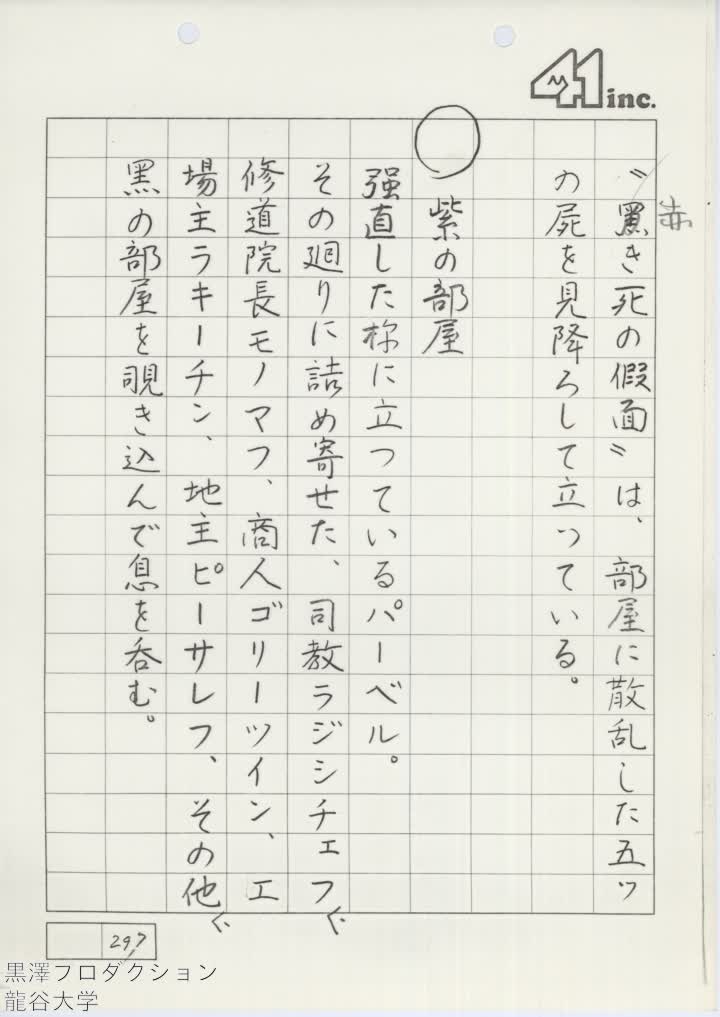 41 inc.
赤
〝黒き死の假面〟は、部屋に散乱した五ツ
の屍を見降ろして立っている。
○ 紫の部屋
强直した様に立っているパーベル。
その廻りに詰め寄せた、司教ラジシチェフ、
修道院長モノマフ、商人ゴリーツイン、工
場主ラキーチン、地主ピーサレフ、その他、
黒の部屋を覗き込んで息を呑む。
297
黒澤プロダクション
龍谷大学